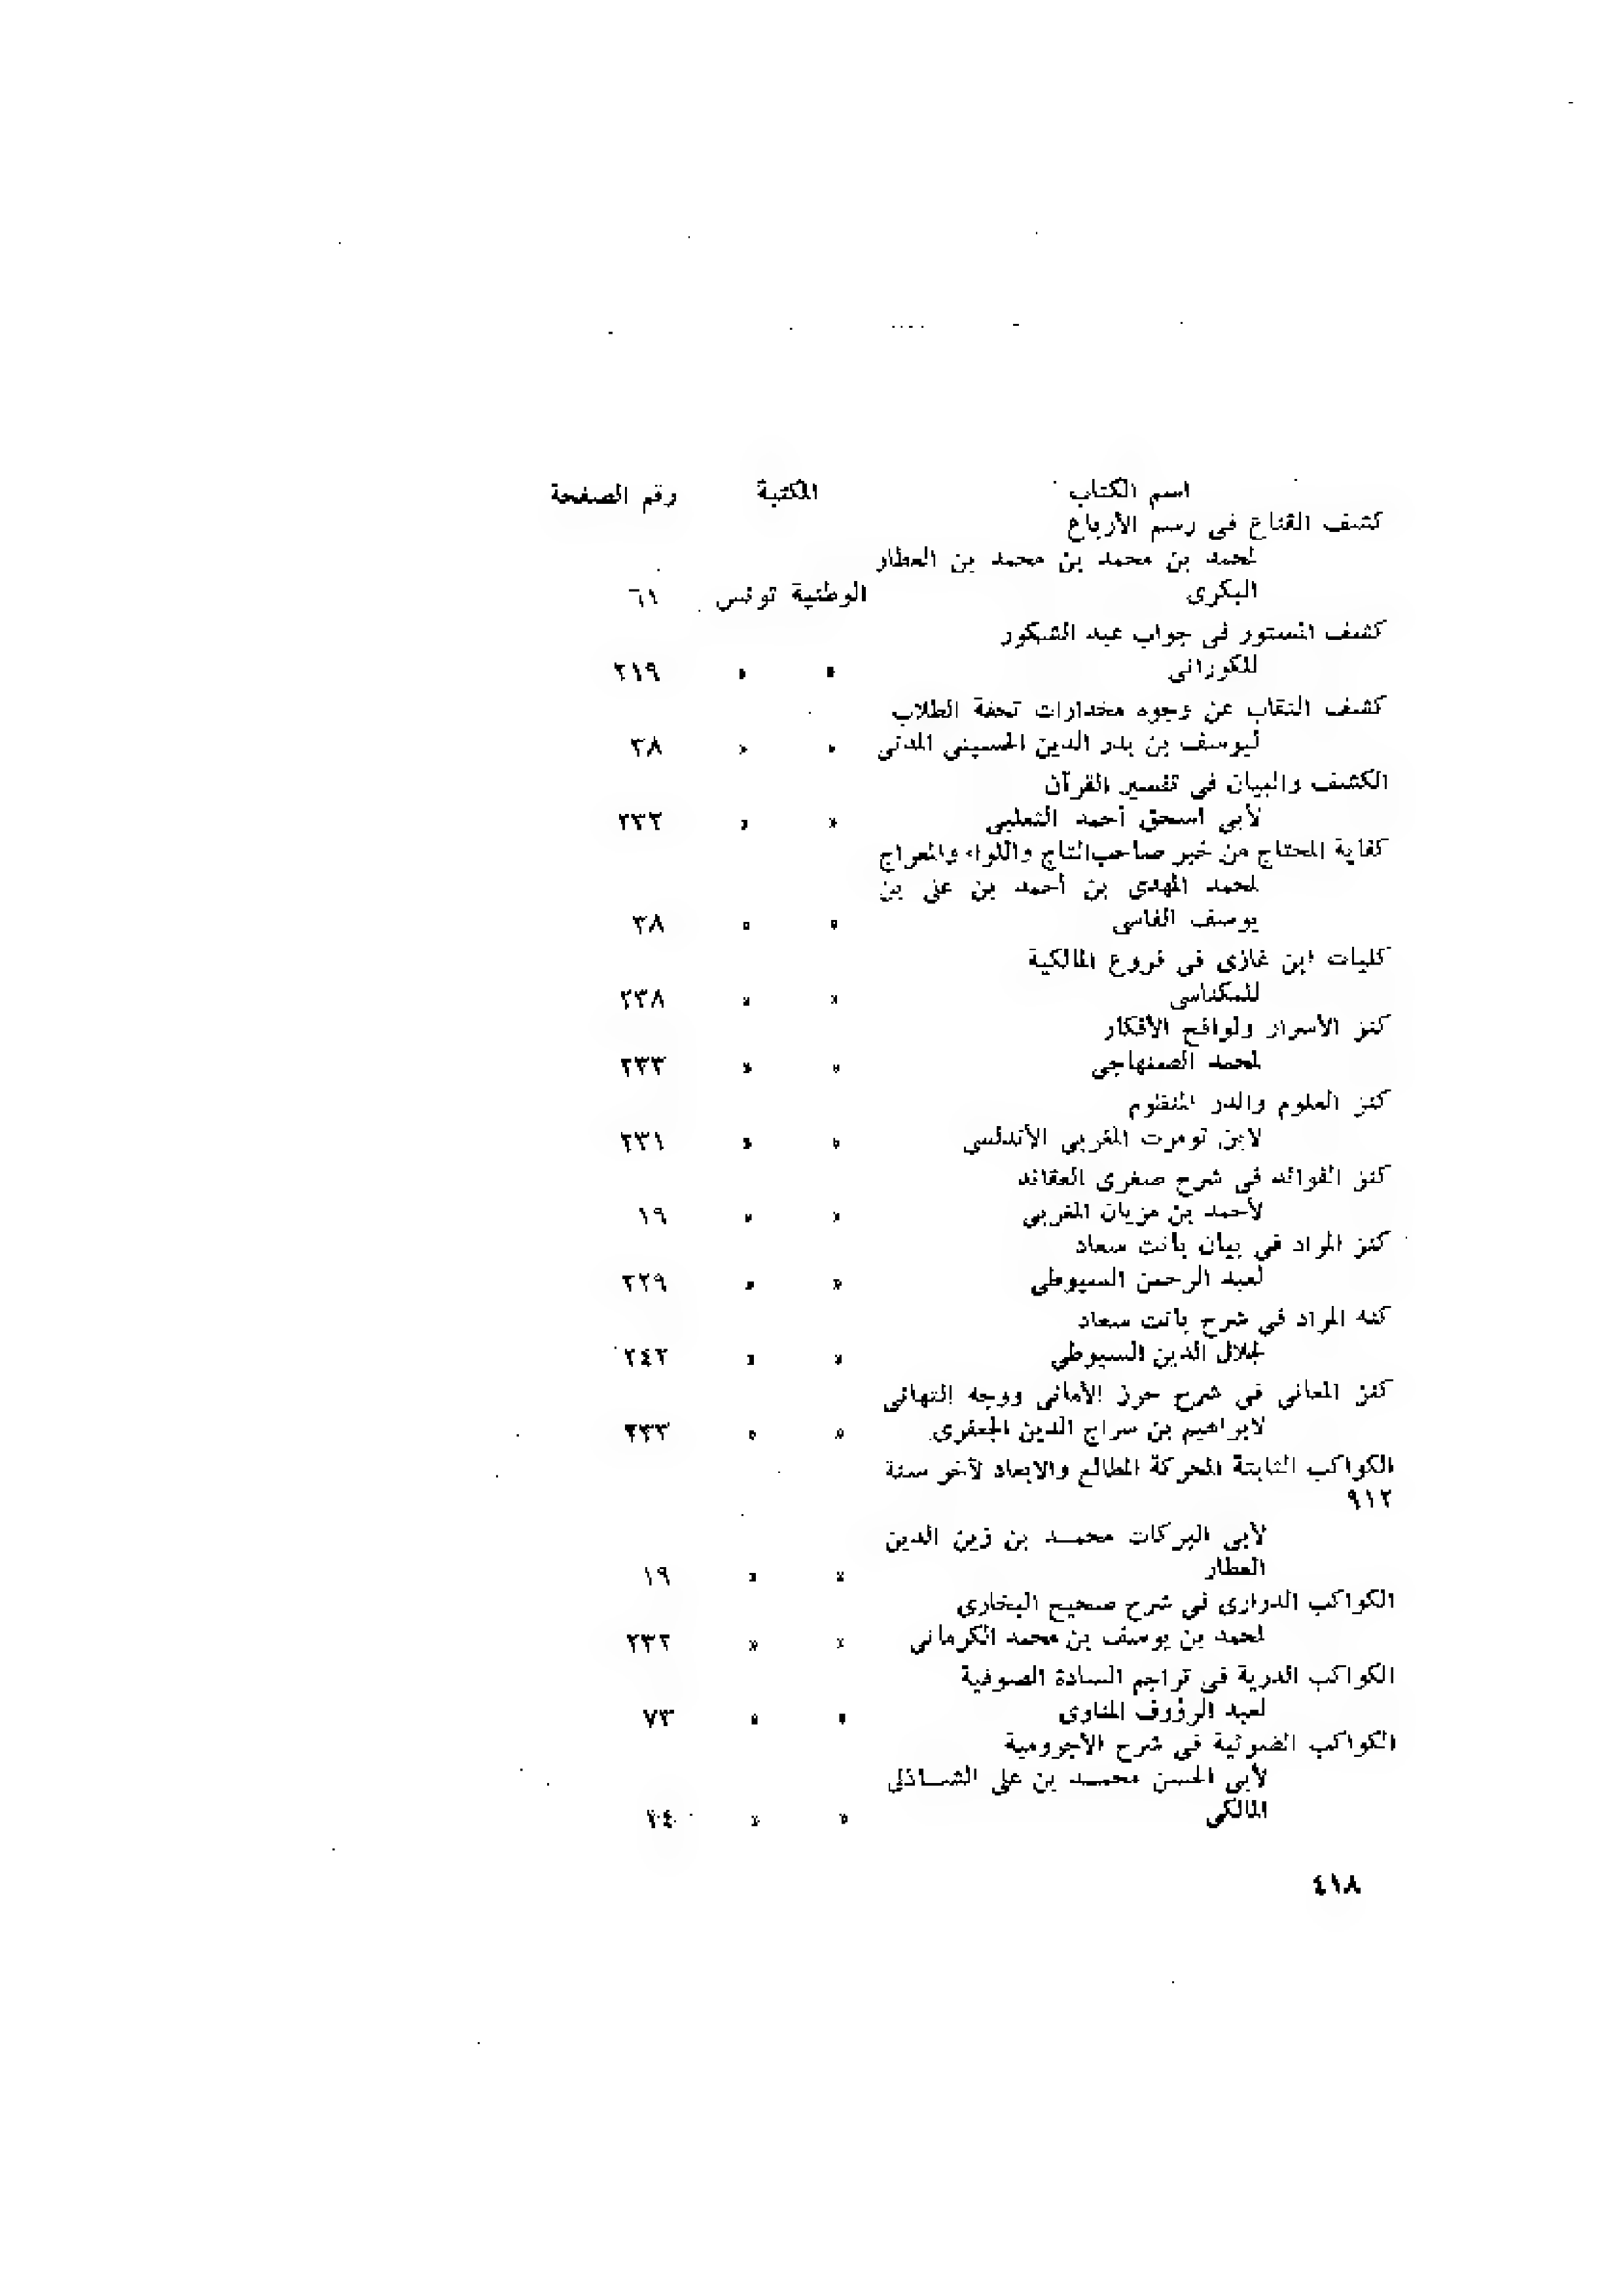 اسم الكتاب المكتبة رقم الصفحة
كشف القناع فى رسم الأرباع
لمحمد بن محمد بن محمد بن العطار
البكرى الوطنية تونس ٦١
كشف المستور فى جواب عبد الشكور
للكورانى » » ٢١٩
كشف النقاب عن وجوه مخدارات تحفة الطلاب
ليوسف بن بدر الدين الحسينى المدنى » » ٣٨
الكشف والبيان فى تفسير القرآن
لأبى اسحق أحمد الثعلبى » » ٢٣٢
كفاية المحتاج من خبر صاحب التاج واللواء والمعراج
لمحمد المهدى بن أحمد بن على بن
يوسف الفاسى » » ٣٨
كليات ابن غازى فى فروع المالكية
للمكناسى » » ٢٣٨
كنز الأسرار ولواقح الأفكار
لمحمد الصنهاجى » » ٢٣٣
كنز العلوم والدر المنظوم
لابن تومرت المغربى الأندلسى » » ٢٣١
كنز الفوائد فى شرح صغرى العقائد
لأحمد بن مزيان المغربى » » ١٩
كنز المراد فى بيان بانت سعاد
لعبد الرحمن السيوطى » » ٢٢٩
كنه المراد فى شرح بانت سعاد
لجلال الدين السيوطى » » ٢٤٢
كنز المعانى فى شرح حرز الأمانى ووجه التهانى
لابراهيم بن سراج الدين الجعفرى » » ٢٣٣
الكواكب الثابتة المحركة المطالع والابعاد لآخر سنة
٩١٢
لأبى البركات محمد بن زين الدين
العطار » » ١٩
الكواكب الدرارى فى شرح صحيح البخارى
لمحمد بن يوسف بن محمد الكرمانى » » ٢٣٢
الكواكب الدرية فى تراجم السادة الصوفية
لعبد الرؤوف المناوى » » ٧٣
الكواكب الضوئية فى شرح الأجرومية
لأبى الحسن محمد بن على الشاذلى
المالكى » » ٢٤
٤١٨